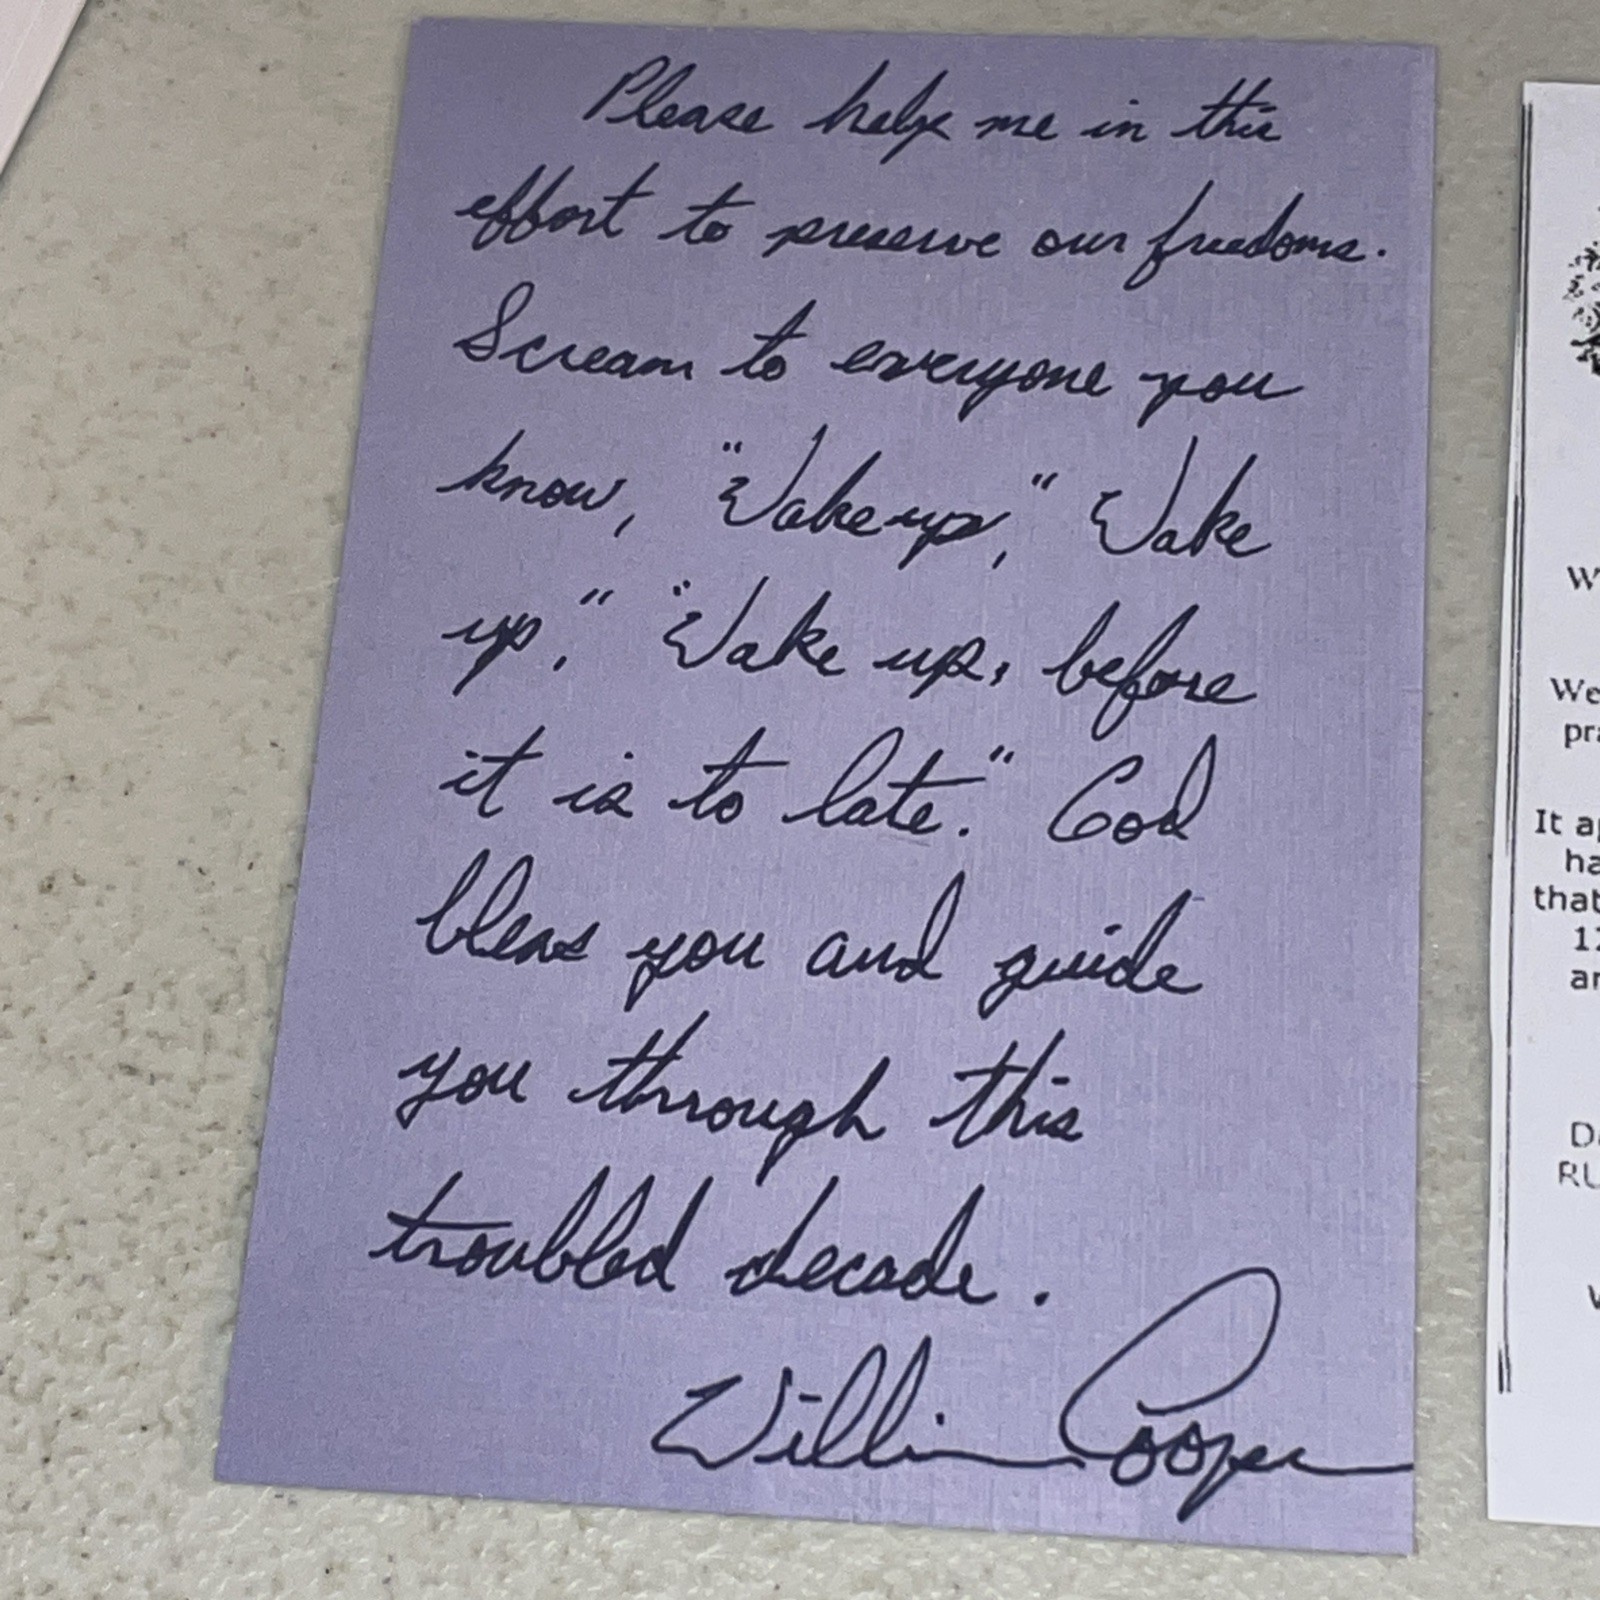 Please help me in this
effort to preserve our freedoms.
Scream to everyone you
know, "Wake up," Wake
up," "Wake up, before
it is to late." God
bless you and guide
you through this
troubled decade.
William Cooper
W
We
pra
It ap
ha
that
12
an
D
RU
V